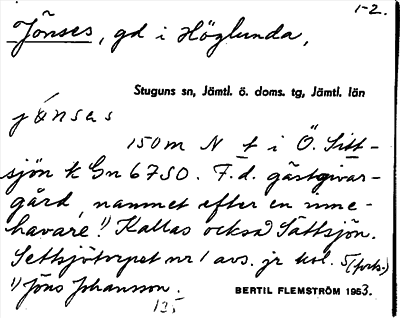 1-2.
Jönses, gd i Höglunda,
Stuguns sn, Jämtl. ö. doms. tg, Jämtl. län
jönsas
150 m N t i Ö. Sitt-
sjön k Gn 6750. F.d. gästgivar-
gård, namnet efter en inne-
havare.¹⁾ Kallas också Sättsjön.
Settsjötorpet nr 1 avs. jr kol. 5 (forts.)
¹⁾ Jöns Johansson.
BERTIL FLEMSTRÖM 1953.
135